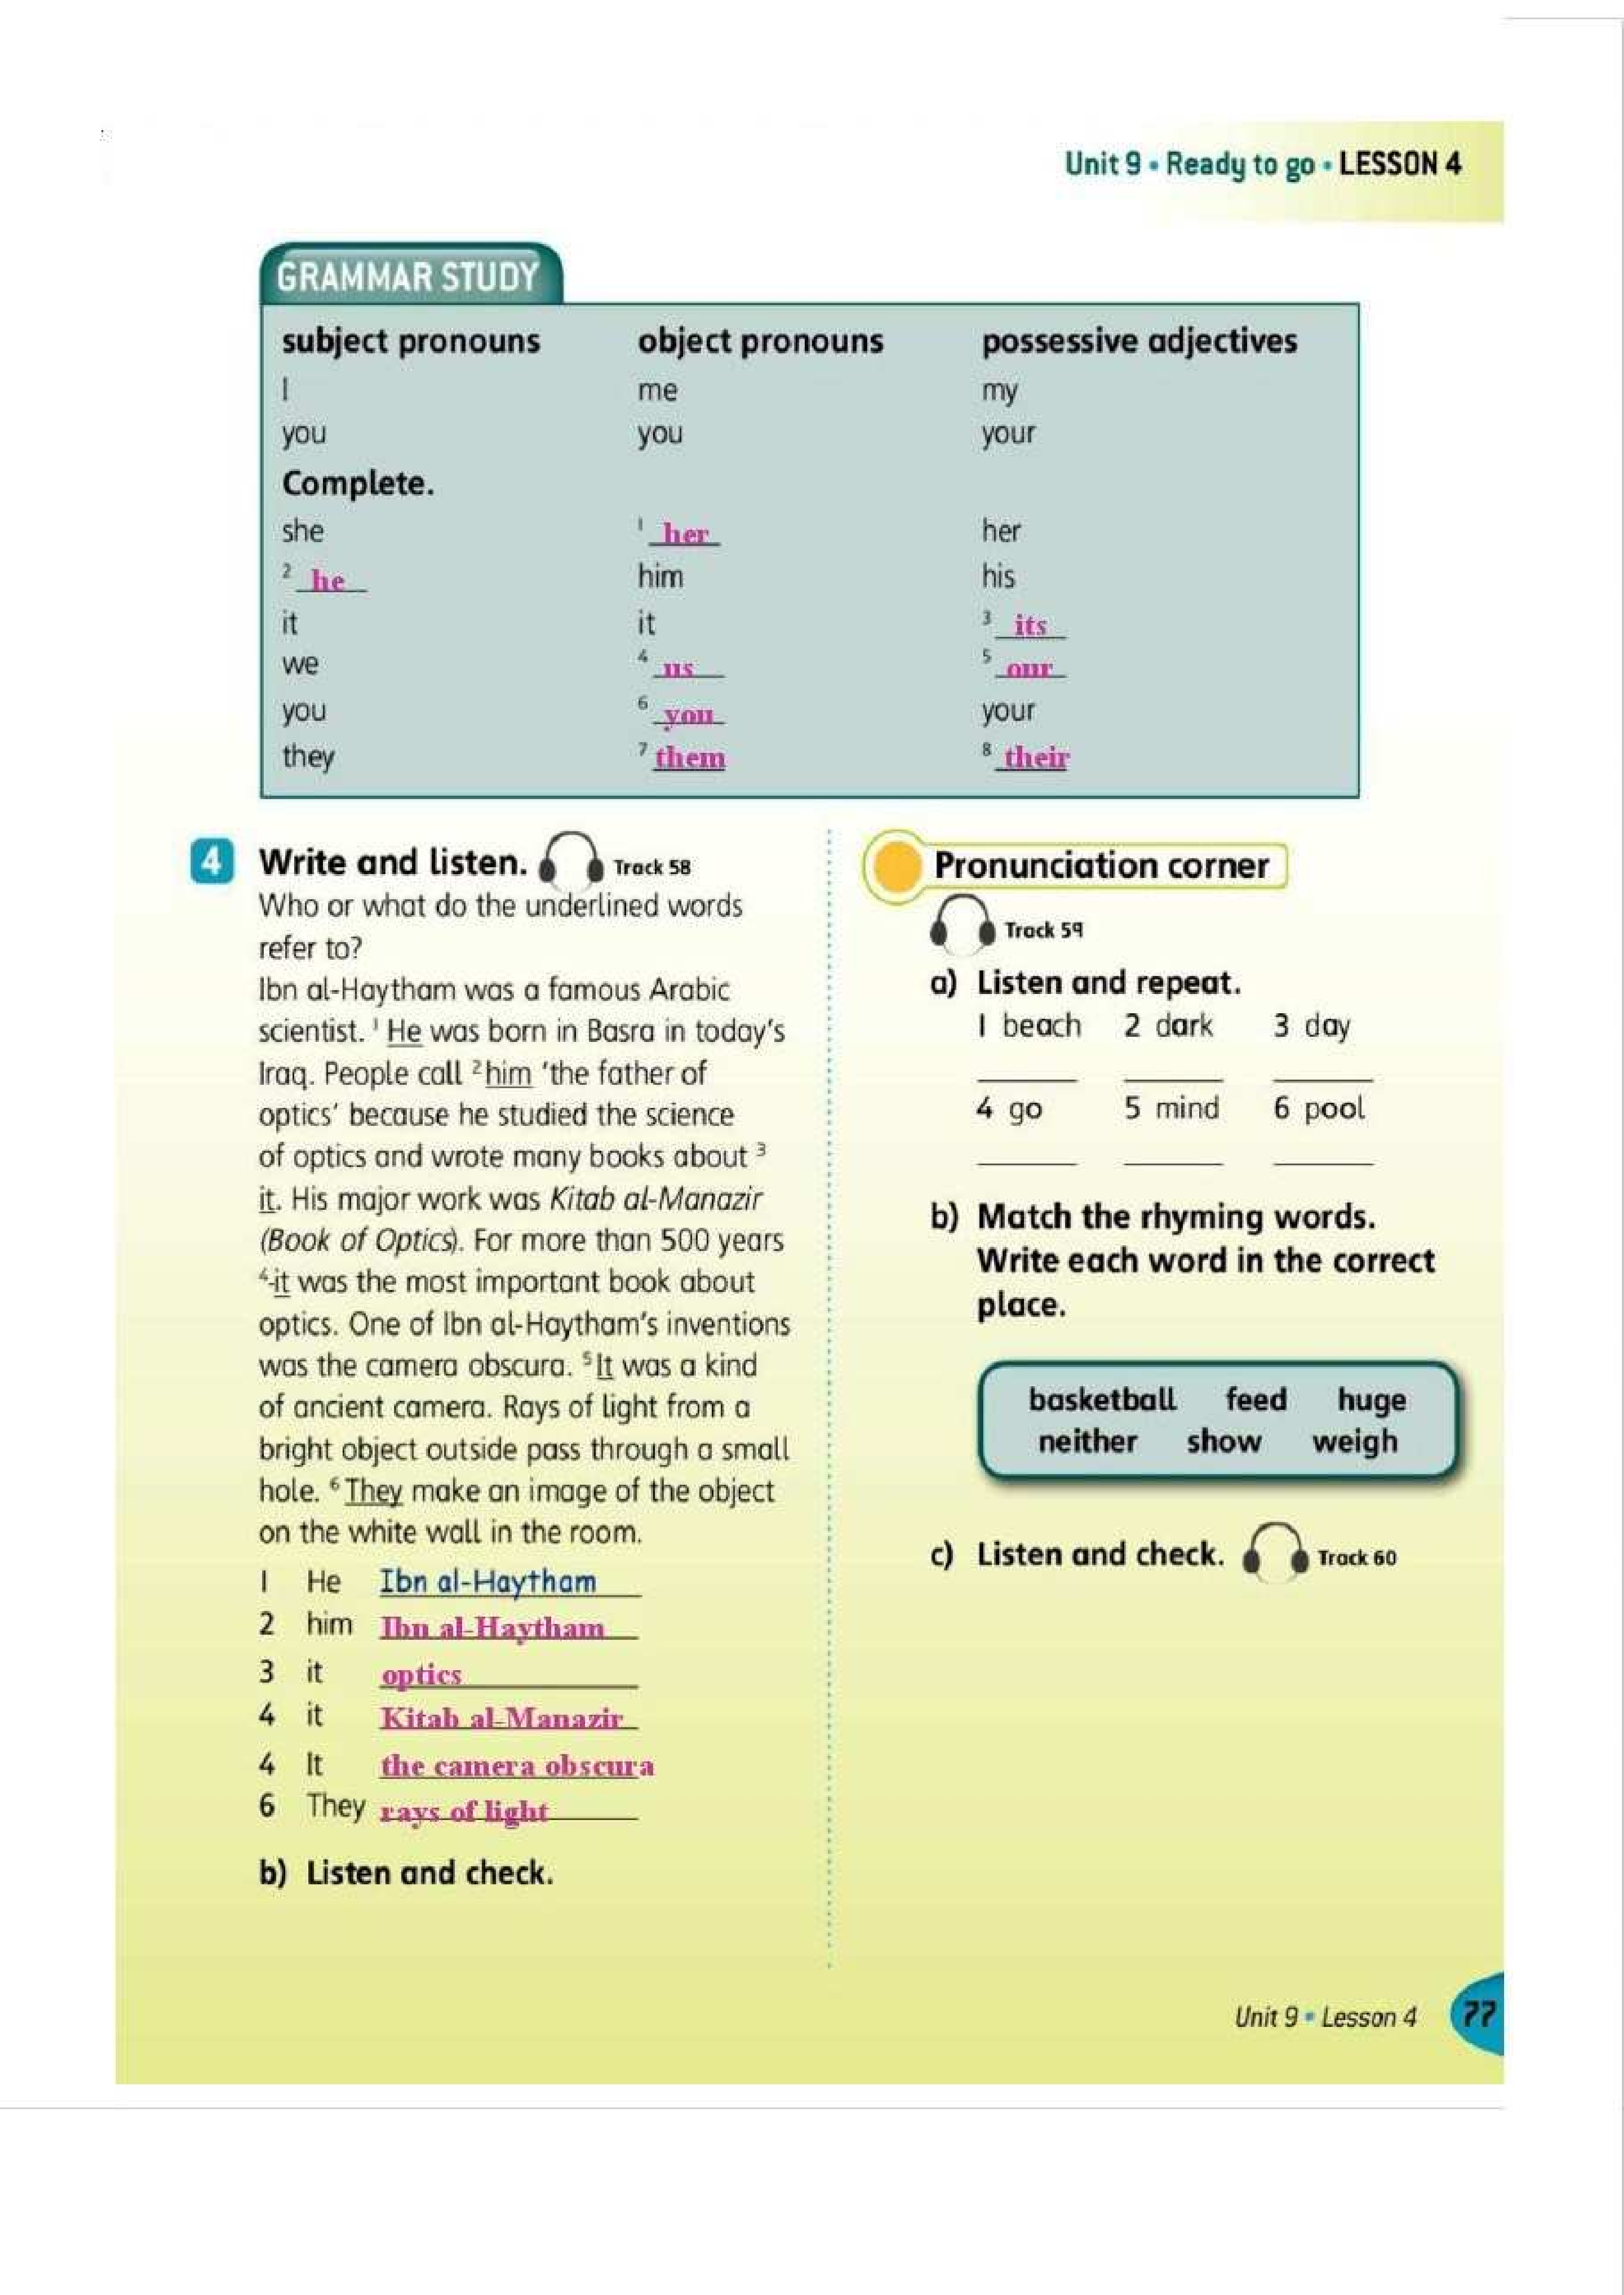 Unit 9 • Ready to go • LESSON 4
GRAMMAR STUDY
subject pronouns object pronouns possessive adjectives
I me my
you you your
Complete.
she 1 her her
2 he him his
it it 3 its
we 4 us 5 our
you 6 you your
they 7 them 8 their
4 Write and listen. Track 58
Who or what do the underlined words
refer to?
Ibn al-Haytham was a famous Arabic
scientist. 1 He was born in Basra in today's
Iraq. People call 2 him 'the father of
optics' because he studied the science
of optics and wrote many books about 3
it. His major work was Kitab al-Manazir
(Book of Optics). For more than 500 years
4 it was the most important book about
optics. One of Ibn al-Haytham's inventions
was the camera obscura. 5 It was a kind
of ancient camera. Rays of light from a
bright object outside pass through a small
hole. 6 They make an image of the object
on the white wall in the room.
1 He Ibn al-Haytham
2 him Ibn al-Haytham
3 it optics
4 it Kitab al-Manazir
4 It the camera obscura
6 They rays of light
b) Listen and check.
Pronunciation corner
Track 59
a) Listen and repeat.
1 beach 2 dark 3 day
4 go 5 mind 6 pool
b) Match the rhyming words.
Write each word in the correct
place.
basketball feed huge
neither show weigh
c) Listen and check. Track 60
Unit 9 • Lesson 4 77